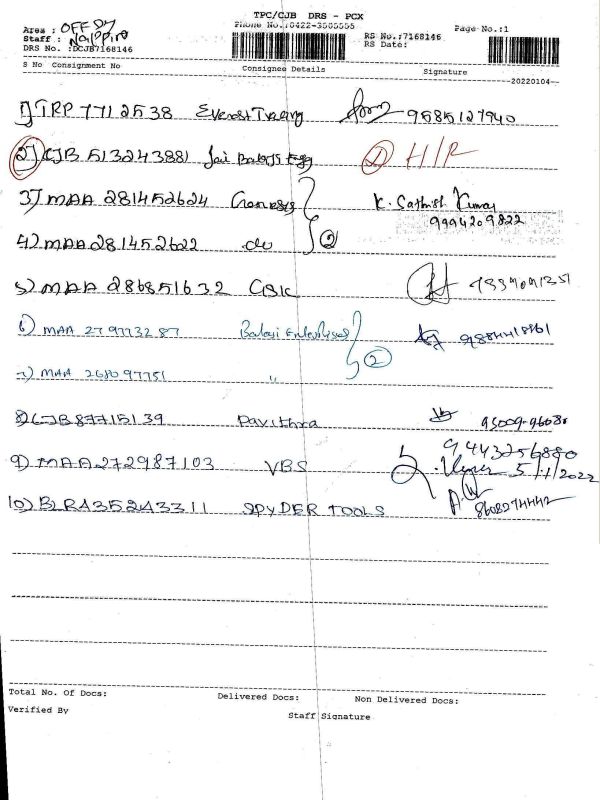 TPC/CJB DRS - PCX
Phone No.:0422-3505555
Page No.:1
Area : OFF Dy
Staff :
DRS No. :DCJB7168146
RS No.:7168146
RS Date:
S No Consignment No Consignee Details Signature
20220104
1) TRP 7712538 Everest Trading 9585127940
2) CJB 513243881 Jai Balaji Egg ① H/R
3) MAA 281452624 Genesys K. Sathish Kumar
9994209822
4) MAA 281452622 do ②
5) MAA 286851632 GSK 7339091351
6) MAA 279773287 Balaji Enterprises 9884418861
②
7) MAA 268097751 "
8) CJB87715139 Pavithra 95009-96080
9443256880
9) MAA272987103 VBS 5/1/2022
10) BLR435243311 SPYDER TOOLS 8608274442
Total No. Of Docs: Delivered Docs: Non Delivered Docs:
Verified By Staff Signature